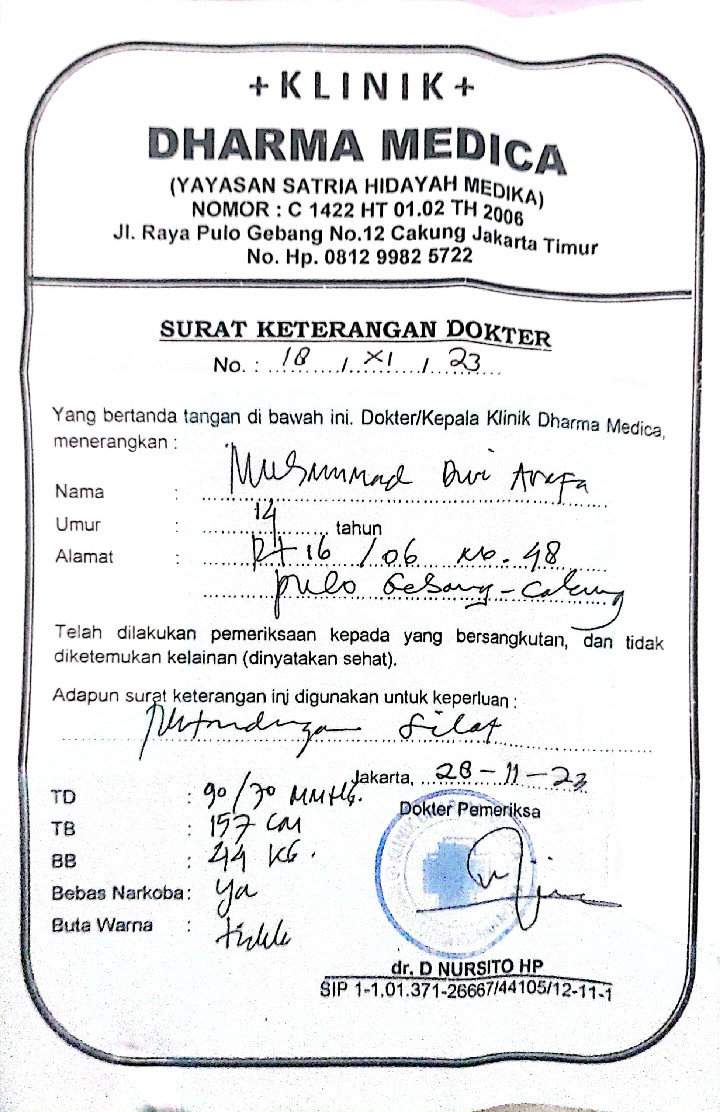 +KLINIK+
DHARMA MEDICA
(YAYASAN SATRIA HIDAYAH MEDIKA)
NOMOR : C 1422 HT 01.02 TH 2006
Jl. Raya Pulo Gebang No.12 Cakung Jakarta Timur
No. Hp. 0812 9982 5722
SURAT KETERANGAN DOKTER
No. : 18 / XI / 23
Yang bertanda tangan di bawah ini. Dokter/Kepala Klinik Dharma Medica,
menerangkan :
Nama : Muhammad Dwi Arafa
Umur : 14 tahun
Alamat : Rt 16 / 06 No. 48
Pulo Gebang - Cakung
Telah dilakukan pemeriksaan kepada yang bersangkutan, dan tidak
diketemukan kelainan (dinyatakan sehat).
Adapun surat keterangan ini digunakan untuk keperluan :
Pertandingan Silat
Jakarta, 28-11-23
TD : 90/70 MMHG.
Dokter Pemeriksa
TB : 157 CM
BB : 44 KG.
Bebas Narkoba : Ya
Buta Warna : tidak
dr. D NURSITO HP
SIP 1-1.01.371-26667/44105/12-11-1